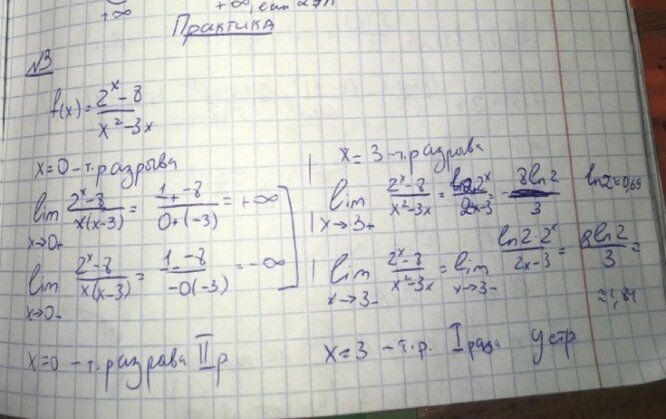 +∞ +∞, если
Практика
№3
f(x) = (2^x - 8)/(x^2 - 3x)
x=0 - т. разрыва
lim x→0+ (2^x - 8)/(x(x-3)) = (1+ - 8)/(0+(-3)) = +∞
lim x→0- (2^x - 8)/(x(x-3)) = (1- - 8)/(-0(-3)) = -∞
x=0 - т. разрова II р
x = 3 - т. разрова
lim x→3+ (2^x - 8)/(x^2 - 3x) = (ln2·2^x)/(2x-3) = 8ln2/3 ln2=0,69
lim x→3- (2^x - 8)/(x^2 - 3x) = lim x→3- (ln2·2^x)/(2x-3) = 8ln2/3 =
≈1,84
x=3 - т.р. I рода устр